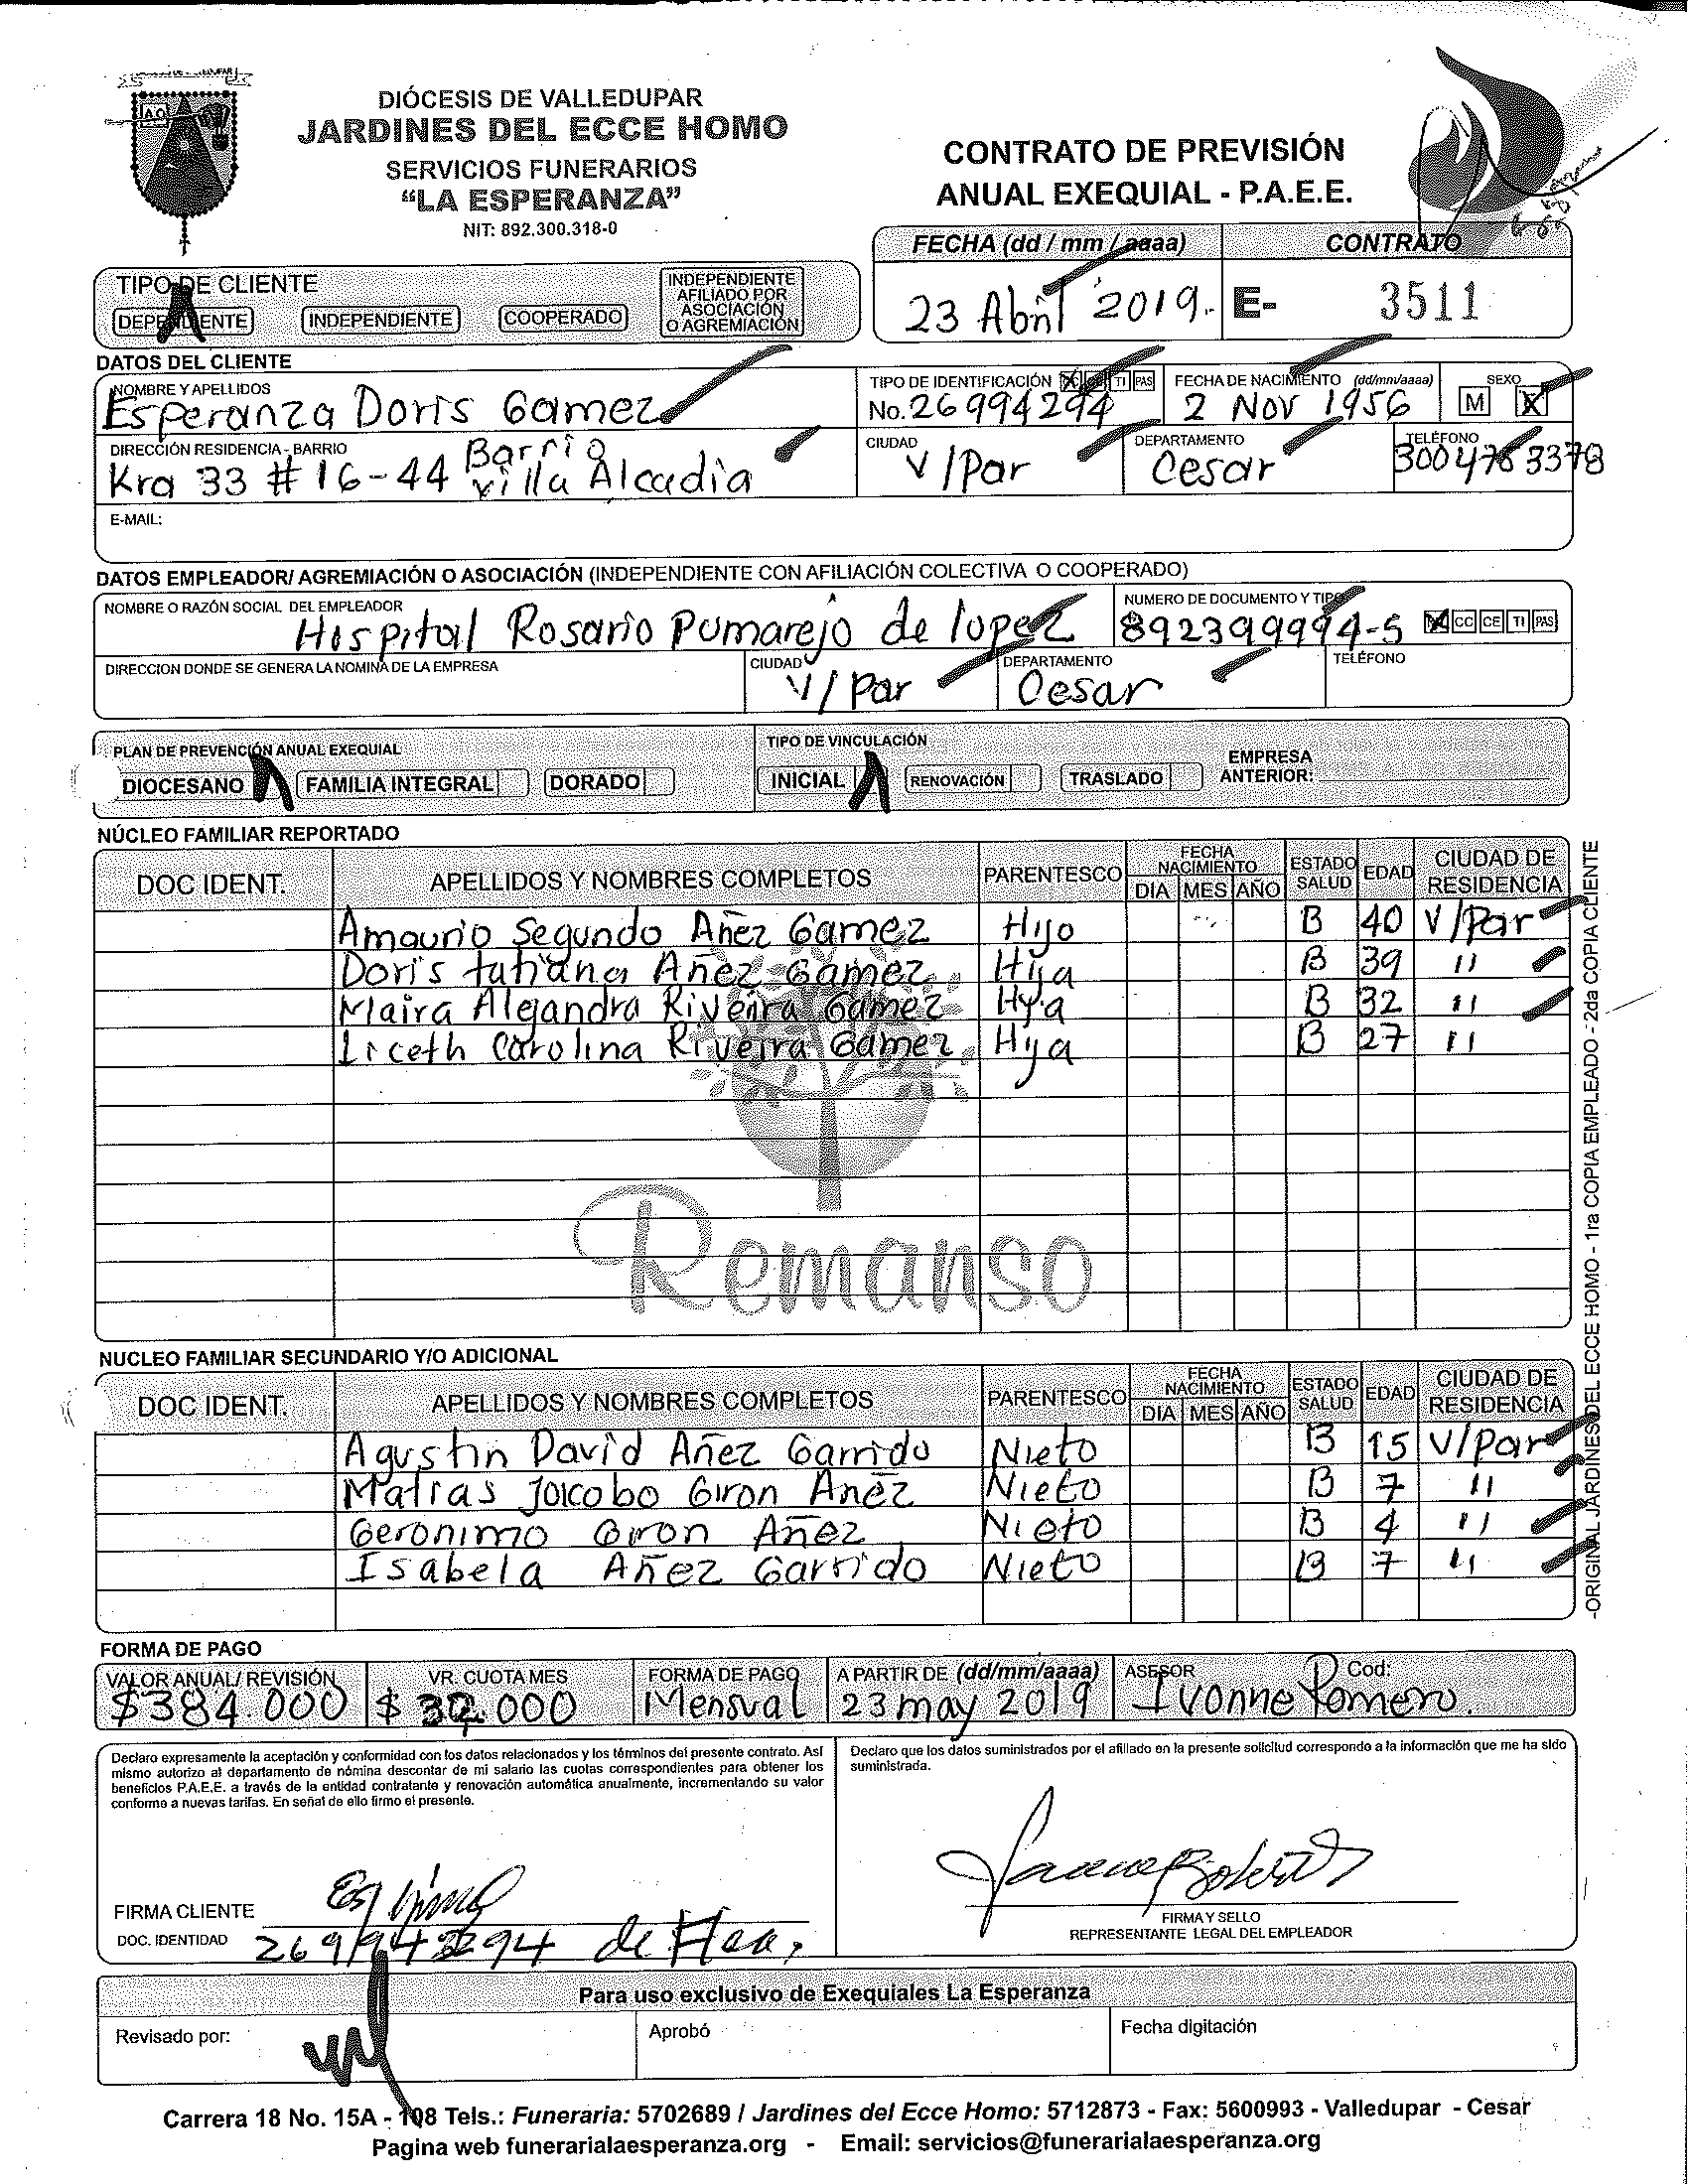 DIÓCESIS DE VALLEDUPAR
JARDINES DEL ECCE HOMO
SERVICIOS FUNERARIOS
“LA ESPERANZA”
NIT: 892.300.318-0
CONTRATO DE PREVISIÓN
ANUAL EXEQUIAL - P.A.E.E.
FECHA (dd / mm / aaaa) CONTRATO
23 Abril 2019. E- 3511
TIPO DE CLIENTE
DEPENDIENTE INDEPENDIENTE COOPERADO INDEPENDIENTE AFILIADO POR ASOCIACIÓN O AGREMIACIÓN
DATOS DEL CLIENTE
NOMBRE Y APELLIDOS TIPO DE IDENTIFICACIÓN CC CE TI PAS FECHA DE NACIMIENTO (dd/mm/aaaa) SEXO
Esperanza Doris Gamez No. 26994294 2 Nov 1956 M X
DIRECCIÓN RESIDENCIA - BARRIO CIUDAD DEPARTAMENTO TELÉFONO
Kra 33 # 16-44 Barrio Villa Alcadia V/Par Cesar 3004763378
E-MAIL:
DATOS EMPLEADOR/ AGREMIACIÓN O ASOCIACIÓN (INDEPENDIENTE CON AFILIACIÓN COLECTIVA O COOPERADO)
NOMBRE O RAZÓN SOCIAL DEL EMPLEADOR NUMERO DE DOCUMENTO Y TIPO
Hospital Rosario Pumarejo de lopez 892399994-5 CC CE TI PAS
DIRECCION DONDE SE GENERA LA NOMINA DE LA EMPRESA CIUDAD DEPARTAMENTO TELÉFONO
V/Par Cesar
PLAN DE PREVENCIÓN ANUAL EXEQUIAL TIPO DE VINCULACIÓN
DIOCESANO FAMILIA INTEGRAL DORADO INICIAL RENOVACIÓN TRASLADO EMPRESA ANTERIOR:
NÚCLEO FAMILIAR REPORTADO
DOC IDENT. APELLIDOS Y NOMBRES COMPLETOS PARENTESCO FECHA NACIMIENTO DIA MES AÑO ESTADO SALUD EDAD CIUDAD DE RESIDENCIA
Amaurio Segundo Añez Gamez Hijo B 40 V/Par
Doris tatiana Añez Gamez Hija B 39 "
Maira Alejandra Riveira Gamez Hija B 32 "
Liceth Carolina Riveira Gamez Hija B 27 "
Remanso
NUCLEO FAMILIAR SECUNDARIO Y/O ADICIONAL
DOC IDENT. APELLIDOS Y NOMBRES COMPLETOS PARENTESCO FECHA NACIMIENTO DIA MES AÑO ESTADO SALUD EDAD CIUDAD DE RESIDENCIA
Agustin David Añez Garrido Nieto B 15 V/Par
Matias Jacobo Giron Añez Nieto B 7 "
Geronimo Giron Añez Nieto B 4 "
Isabela Añez Garrido Nieto B 7 "
-ORIGINAL JARDINES DEL ECCE HOMO - 1ra COPIA EMPLEADO - 2da COPIA CLIENTE
FORMA DE PAGO
VALOR ANUAL/ REVISIÓN VR. CUOTA MES FORMA DE PAGO A PARTIR DE (dd/mm/aaaa) ASESOR Cod:
$384.000 $ 32.000 Mensual 23 may 2019 Ivonne Romero.
Declaro expresamente la aceptación y conformidad con los datos relacionados y los términos del presente contrato. Así
mismo autorizo al departamento de nómina descontar de mi salario las cuotas correspondientes para obtener los
beneficios P.A.E.E. a través de la entidad contratante y renovación automática anualmente, incrementando su valor
conforme a nuevas tarifas. En señal de ello firmo el presente.
Declaro que los datos suministrados por el afiliado en la presente solicitud corresponde a la información que me ha sido
suministrada.
FIRMA CLIENTE
DOC. IDENTIDAD
FIRMA Y SELLO
REPRESENTANTE LEGAL DEL EMPLEADOR
Para uso exclusivo de Exequiales La Esperanza
Revisado por: Aprobó Fecha digitación
Carrera 18 No. 15A - 108 Tels.: Funeraria: 5702689 / Jardines del Ecce Homo: 5712873 - Fax: 5600993 - Valledupar - Cesar
Pagina web funerarialaesperanza.org - Email: servicios@funerarialaesperanza.org